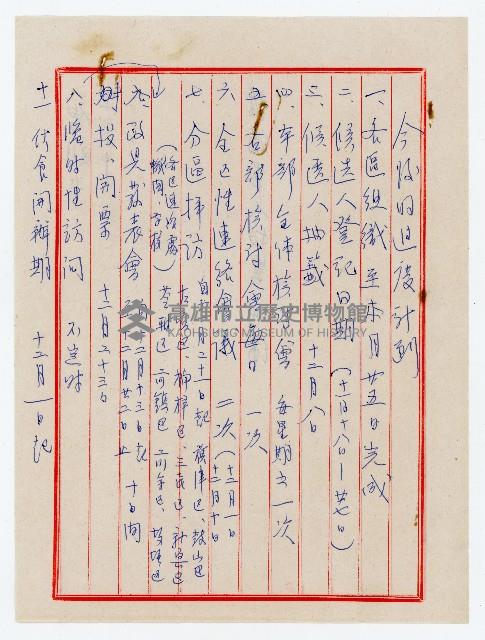 今後的進度計劃
一、各區組織 至本月廿五日完成
二、候選人登記日期 (十一月十八日—廿七日)
三、候選人抽籤 十二月八日
四、本部全体檢討會 每星期五一次
五、各部檢討會每日一次
六、全区性連絡會議 二次 (十二月一日 十二月十日
七、分區拜訪 自 月二十一日起 旗津区、鼓山区
(各区連絡處 機関、学校) 左 区、楠梓区、三民区、新興区
苓雅区、前鎮区 前金区、鹽埕区
九、政見發表會 二月十三日起 二月廿二日止 十日間
投、開票 十二月二十三日
八、臨時性訪问 不定時
十一、伙食開辦期 十二月一日起
高雄市立歷史博物館
KAOHSIUNG MUSEUM OF HISTORY